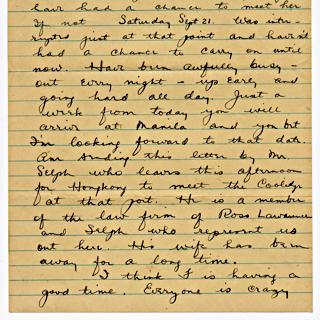 have had a chance to meet her
if not Saturday Sept 21. Was inter-
rupted just at that point and haven't
had a chance to carry on until
now. Have been awfully busy -
out every night - up early and
going hard all day. Just a
week from today you will
arrive at Manila and you bet
I'm looking forward to that date.
Am sending this letter by Mr.
Selph who leaves this afternoon
for Hongkong to meet the Coolidge
at that port. He is a member
of the law firm of Ross, Lawrence
and Selph who represent us
out here. His wife has been
away for a long time.
I think F is having a
good time. Everyone is crazy